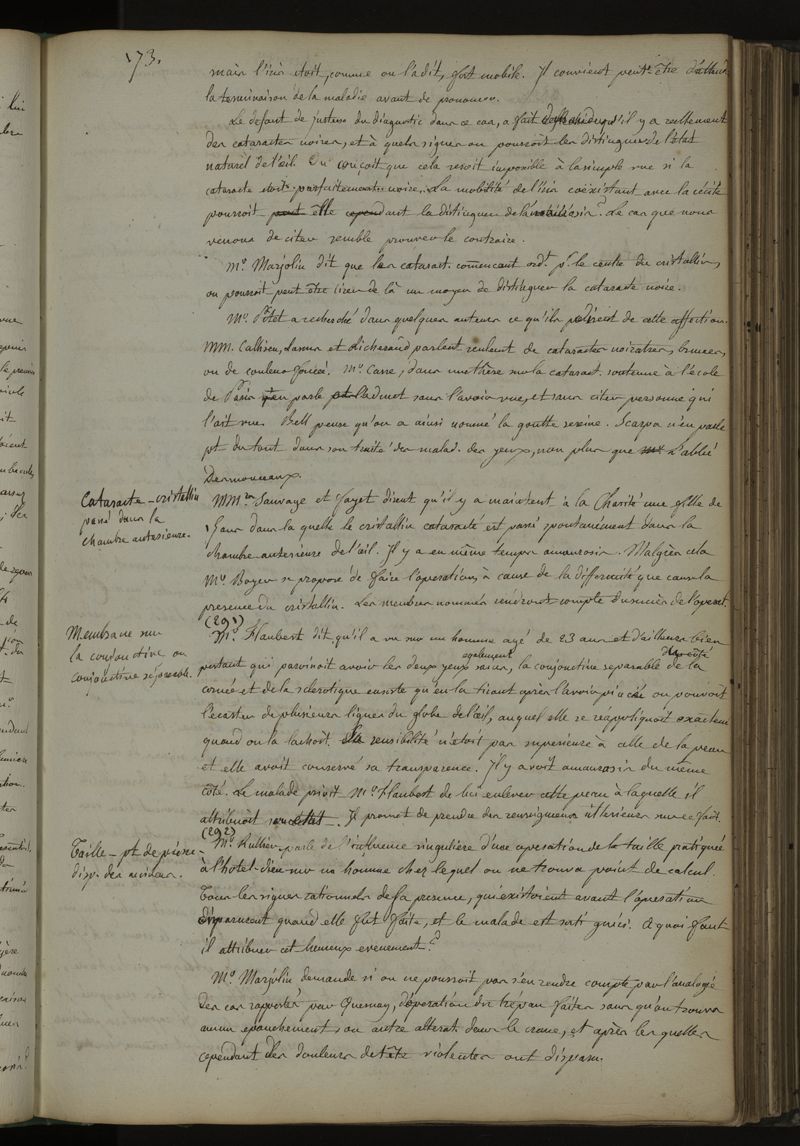 173.
mais l'iris étoit, comme on l'a dit, fort mobile. Il convient peut être d'attend
la terminaison de la maladie avant de prononcer.
Le defaut de justesse du diagnostic dans ce cas, a fait s'il y a reellement
des cataractes noires, et à quels signes on pourroit les distinguer de l'état
naturel de l'œil. On conçoit que cela seroit impossible à la simple vue si la
cataracte étoit parfaitement noire. La mobilité de l'iris coexistant avec la cécité
pourroit elle cependant la distinguer de l'amaurosis? Le cas que nous
venons de citer semble prouver le contraire.
Mr. Marjolin dit que les cataract. commencant ordt. pr. le centre du cristallin,
on pourroit peut être tirer de là un moyen de distinguer la cataracte noire.
Mr. a recherché dans quelques auteurs ce qu'ils de cette affection.
MM. et Richerand parlent seulement de cataractes noiratres, brunes,
ou de couleur foncée. Mr. Carre, dans une thèse sur la cataract. soutenue à l'école
de Paris en parle l'admet sans l'avoir vue, et sans citer personne qui
l'ait vue. Bell pense qu'on a ainsi nommé la goutte sereine. Scarpa n'en parle
pt. du tout dans son traité des malad. des yeux, non plus que L'abbé
Desmonceaux.
Cataracte - cristallin
passé dans la
chambre anterieure.
MMrs. Sauvage et Jayet disent qu'il y a maintent à la Charité une fille de
9 ans dans la quelle le cristallin cataracté est passé spontanement dans la
chambre anterieure de l'œil. Il y a en même temps amaurosis. Malgrés cela
Mr. Boyer se propose de faire l'operation, à cause de la difformité que cause la
presence du cristallin. Les membres nommés rendront compte du succès de l'operat.
(291)
Membrane sur
la conjonctive ou
conjonctive séparable.
Mr. Flaubert dit qu'il a vu sur un homme agé de 23 ans et d'ailleurs bien
portant qui paroissoit avoir les deux yeux egalement sains, la conjonctive separable de la
cornée et de la sclerotique ensorte qu'en la tirant après l'avoir pincée on pouvoit
l'ecarter de plusieurs lignes du globe de l'œil, auquel elle se réappliquoit exactem
quand on la lachoit. sensibilité n'étoit pas superieure à celle de la peau
et elle avoit conservé sa transparence. Il y avoit amaurosis du même
coté. Le malade prioit Mr. Flaubert de lui enlever cette peau à laquelle il
attribuoit son etat. Il promet de prendre des renseignemens ulterieurs sur ce fait.
(292)
Taille - pt. de pierre -
disp. des accidens.
Mr. Rullier parle de l'influence singulière d'une operation de la taille pratiquée
à l'hotel-dieu sur un homme chez lequel on ne trouva point de calcul.
Tous les signes rationnels de sa presence, qui existoient avant l'operation
disparurent quand elle fut faite, et le malade est sorti guéri. A quoi faut
il attribuer cet heureux evenement?
Mr. Marjolin demande si on ne pourroit pas s'en rendre compte par l'analogie
des cas rapportés par Quesnay, d'operations du trépan faites sans qu'on trouva
aucun epanchement, ou autre alterat. dans le crane, et après les quelles
cependant des douleurs de tête violentes ont disparu.